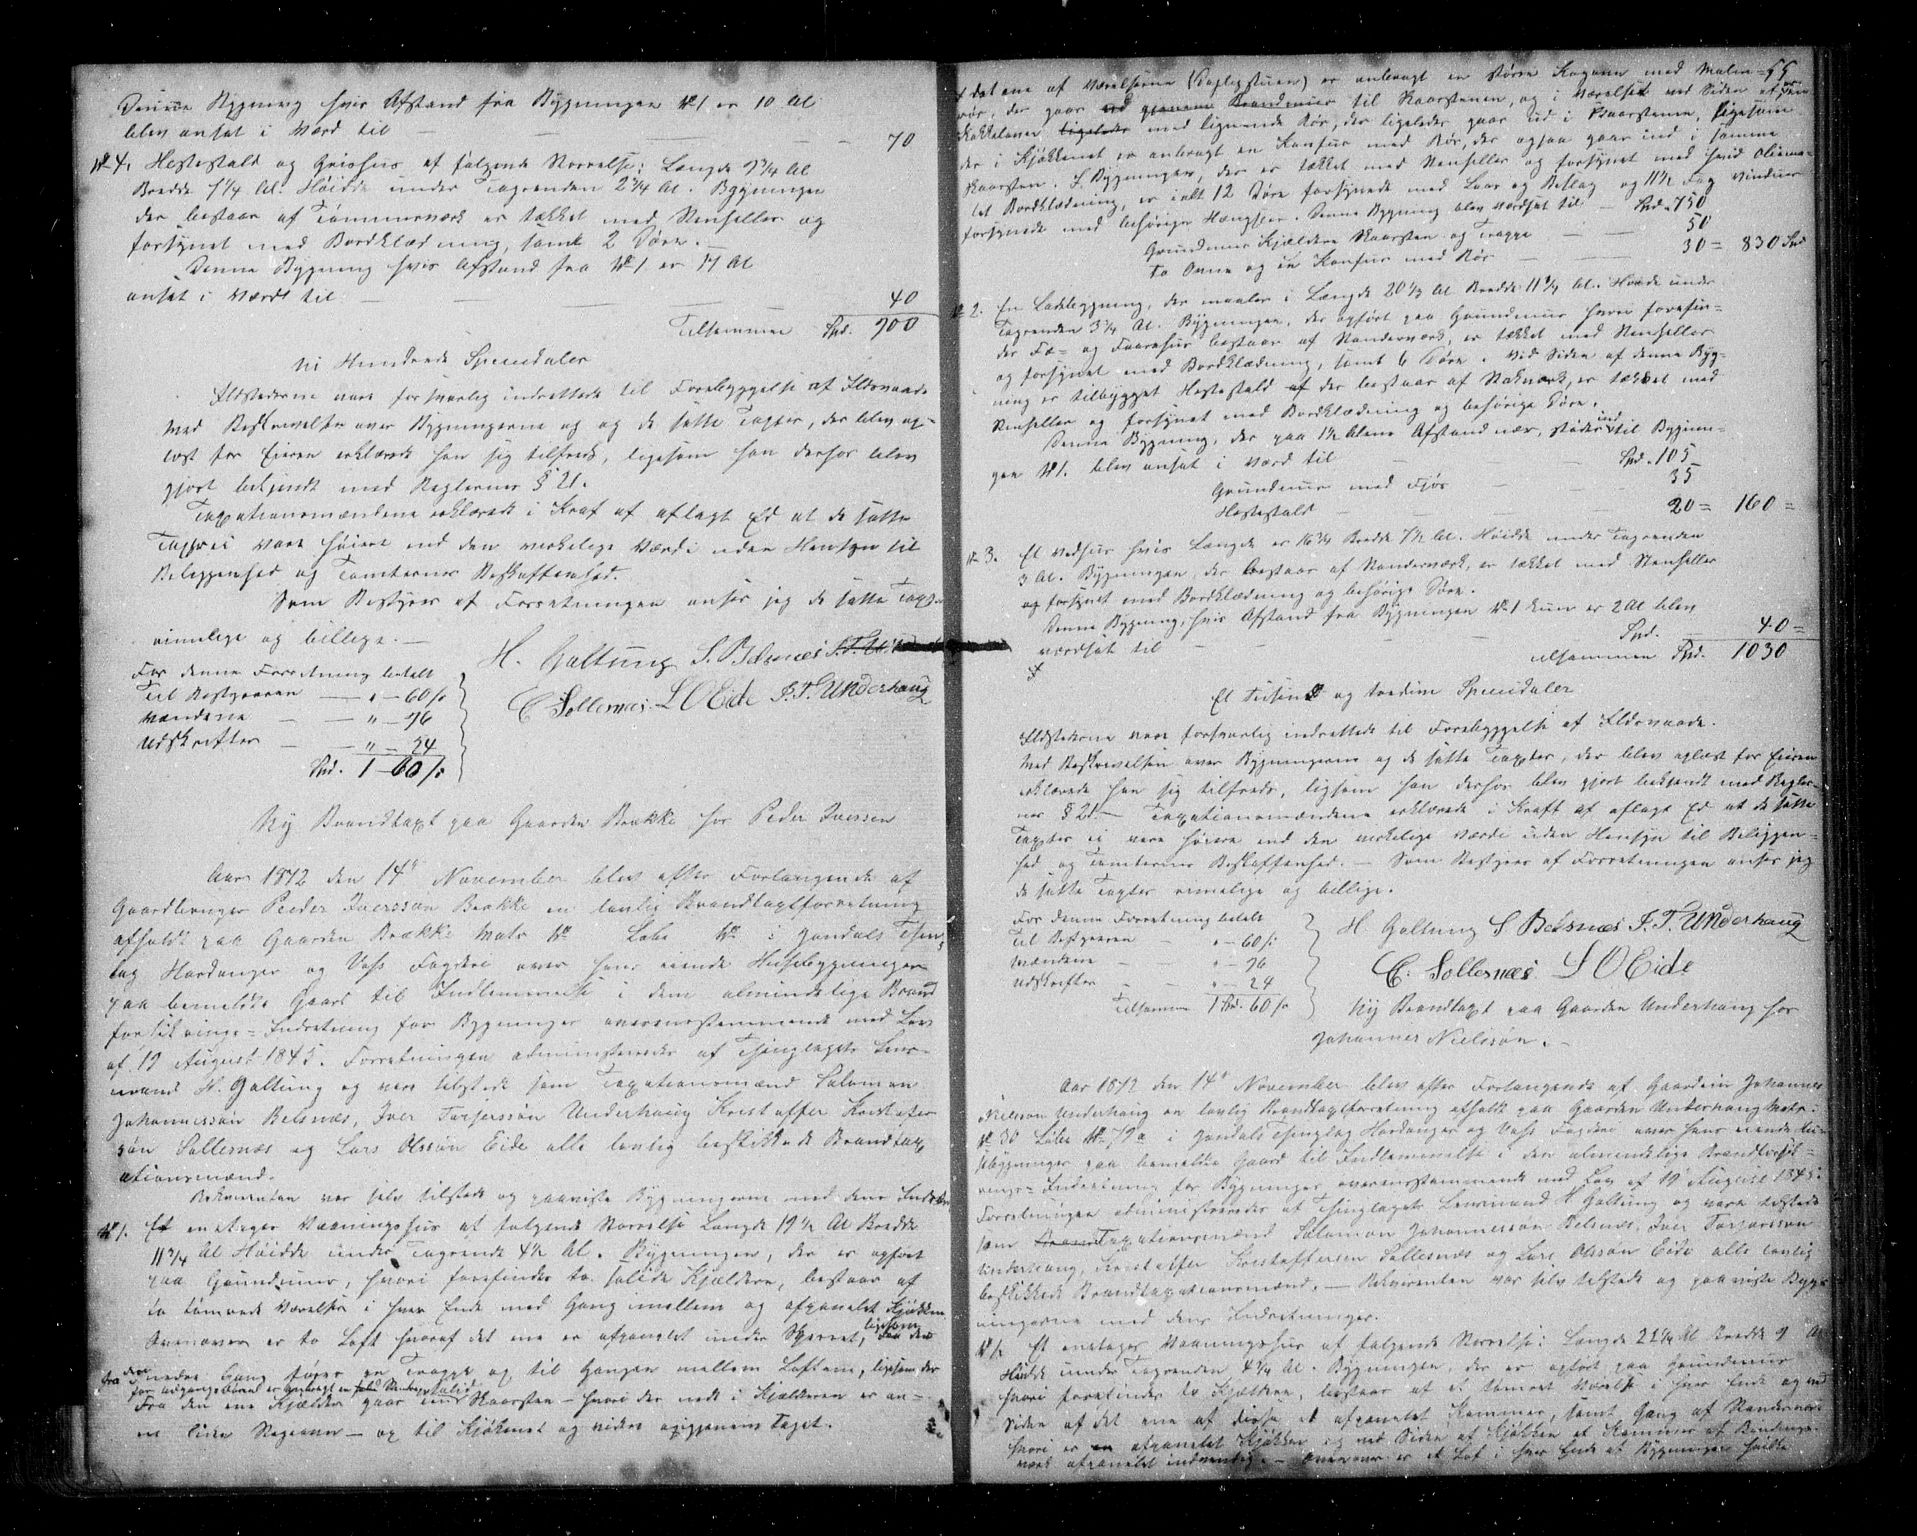 Denne Bygning hvis Afstand fra Bygningen No 1 er 10 Al
blev ansat i Værd til — — — 70
No 4. Hestestald og Grishus af følgende Størrelse: Længde 9 3/4 Al
Bredde 5 1/4 Al. Høide under Tagrenden 2 3/4 Al. Bygningen
der bestaar af Tømmerværk er tækket med Stenheller og
forsynet med Bordklædning, samt 2 Døre. —
Denne Bygning hvis Afstand fra No 1 er 17 Al
ansat i Værdi til — — — 40
Tilsammen Spd. 900
Ni Hundrede Speciedaler
Ildstederne vare forsvarlig indrettede til Forebyggelse af Ildsvaade.
Med Beskrivelsen over Bygningerne og og de satte Taxter, der blev op-
læst for Eieren erklærede han sig tilfreds, ligesom han derhos blev
gjort bekjendt med Reglernes § 21.
Taxationsmændene erklærede i Kraf af aflagt Ed at de satte
Taxter ei vare høiere end den virkelige Værdi uden Hensyn til
Beliggenhed og Tomternes Beskaffenhed.
Som Bestyrer af Forretningen anser jeg de satte Taxter
rimelige og billige. —
H. Galtung S. Belsnæs
For denne Forretning betalt
Til Bestyreren — " — 60 ß
Mændene — — " — 96
Udskrifter — — " — 24
Spd. 1 — 60 ß
C Sollesnæs L O Eide I. T. Underhaug
Ny Brandtaxt paa Gaarden Brække for Peder Iversen
Aar 1872 den 14de November blev efter Forlangende af
Gaardbruger Peeder Iverssøn Brække en lovlig Brandtaxtforretning
afholdt paa Gaarden Brække Matr No Løbe No i Jondals Thing
lag Hardanger og Voss Fogderi over hans eiende Husebygninger
paa bemeldte Gaard til Indlemmelse i den almindelige Brand
forsikrings-Indretning for Bygninger overensstemmende med Lov
af 19 August 1845. Forretningen administreredes af Thinglagets Lens-
mand H. Galtung og vare tilstede som Taxationsmænd Salomon
Johannessøn Belsnæs, Iver Torjerssøn Underhaug Kristoffer Kristoffer
søn Sollesnæs og Lars Olssøn Eide alle lovlig beskikkede Brandtax
ationsmænd.
Rekvirenten var selv tilstede og paaviste Bygningerne med dens Indretn
No 1. Et enetages Vaaningshus af følgende Størrelse Længde 19 1/2 Al Bredde
11 3/4 Al Høidde under Tagrende 4 1/2 Al. Bygningen, der er opført
paa Grundmur, hvori forefindes to solide Kjældere, bestaar af
to tømrede Værelser i hver Ende med Gang imellem og afpanelet Kjøkken
Ovenover er to Loft hvoraf det ene er afpanelet under Sperret, ligesom
fra den nedre Gang fører en Trappe op til Gangen mellem Loftene, ligesom der
for
Fra den ene Kjælder gaar en solid Skaarsten — hvori der nedi Kjælderen er an-
et lidet — op til Kjøkenet og videre op gjennem Taget.
55
I det ene af Værelserne (Daglegstuen) er anbragt en større Kogovn med Malm-
rør, der gaar ved gjennem Brandmur til Skaarstenen, og i Værelset ved Siden af en
Kakkelovn ligeledes med lignende Rør, der ligeledes gaar ud i Skaarstenen, ligesom
der i Kjøkkenet er anbragt en Komfur med Rør, der ogsaa gaar ind i samme
Skaarsten. I Bygningen, der er tækket med Stenheller og forsynet med hvid Oliema-
let Bordklædning, er ialt 12 Døre forsynede med Laas og Beslag og 11 1/2 Fag Vinduer
forsynede med behørige Hængsler. Denne Bygning blev værdsat til — Spd. 750
Grundmur Kjældere Skaarsten og Trappe — — 50
To Ovne og et Komfur med Rør — — 30 = 830 Spd
No 2. En Ladebygning, der maaler i Længde 20 1/3 Al Bredde 11 3/4 Al. Høide under
Tagrenden 3 1/4 Al. Bygningen, der opført paa Grundmur hvori forefin-
des Fæ- og Faarehus bestaar af Standerværk, er tækket med Stenheller
og forsynet med Bordklædning, samt 6 Døre. Ved Siden af denne Byg-
ning er tilbygget Hestestald af der bestaar af Stakværk, er tækket med
Stenheller og forsynet med Bordklædning og behørige Døre.
Denne Bygning, der paa 1 1/2 Alens Afstand nær, støder ind til Bygnin-
gen No 1. blev ansat i Værd til — — Spd. 105
Grundmur med Fjøs — — 35
Hestestald — — 20 = 160 =
No 3. Et Vedhus hvis Længde er 16 3/4 Bredde 7 1/2 Al. Høidde under Tagrenden
3 Al. Bygningen, der bestaar af Standerværk, er tækket med Stenheller
og forsynet med Bordklædning og behørige Døre.
Denne Bygning, hvis Afstand fra Bygningen No 1 kun er 2 Al blev
værdsat til — — Spd. 40 =
Tilsammen Spd. 1030
Et Tusind og tredive Speciedaler
Ildstederne vare forsvarlig indrettede til Forebyggelse af Ildsvaade.
Med Beskrivelsen over Bygningerne og de satte Taxter, der blev oplæst for Eieren
erklærede han sig tilfreds, ligesom han derhos blev gjort bekjendt med Regler-
nes § 21. — Taxationsmændene erklærede i Kraft af aflagt Ed at de satte
Taxter ei vare høiere end den virkelige Værdi uden Hensyn til Beliggen-
hed og Tomternes Beskaffenhed. — Som Bestyrer af Forretningen anser jeg
de satte Taxter rimelige og billige.
For denne Forretning betalt
Til Bestyreren — " — 60 ß
Mændene — " — 96
Udskrifter — " — 24
Tilsammen 1 Spd. 60 ß
H Galtung S Belsnæs I. T. Underhaug
C. Sollesnæs L O Eide
Ny Brandtaxt paa Gaarden Underhaug for
Johannes Nielssøn. —
Aar 1872 den 14de November blev efter Forlangende af Gaardeier Johannes
Nielsøn Underhaug en lovlig Brandtaxtforretning afholdt paa Gaarden Underhaug Matr:
No 30 Løbe No 79a i Jondals Thinglag Hardanger og Voss Fogderi over hans eiende Hu-
sebygninger paa bemeldte Gaard til Indlemmelse i den almindelige Brandforsik-
rings-Indretning for Bygninger overensstemmende med Lov af 19 August 1845.
Forretningen administreredes af Thinglagets Lensmand H Galtung og vare tilstede
som Taxationsmænd Salomon Johannessøn Belsnæs, Iver Torjerssøn
Underhaug, Kristoffer Kristoffersen Sollesnæs og Lars Olssøn Eide alle lovlig
beskikkede Brandtaxationsmænd. — Rekvirenten var selv tilstede og paaviste Byg-
ningerne med dens Indretninger.
No 1. Et enetages Vaaningshus af følgende Størrelse: Længde 21 1/4 Al Bredde 9 Al
Høidde under Tagrenden 4 1/4 Al. Bygningen, der er opført paa Grundmur
hvori forefindes to Kjældere, bestaar af et tømret Værelse i hver Ende og ved
Siden af det ene af disse et afpanelet Kammer, samt Gang af Standerværk
hvori er en afpanelet Kjøkken og ved Siden af Kjøkken et Kammer af Bindings-
værk afpanelet indvendig. — Ovenover er et Loft i hver Ende af Bygningen hvilke